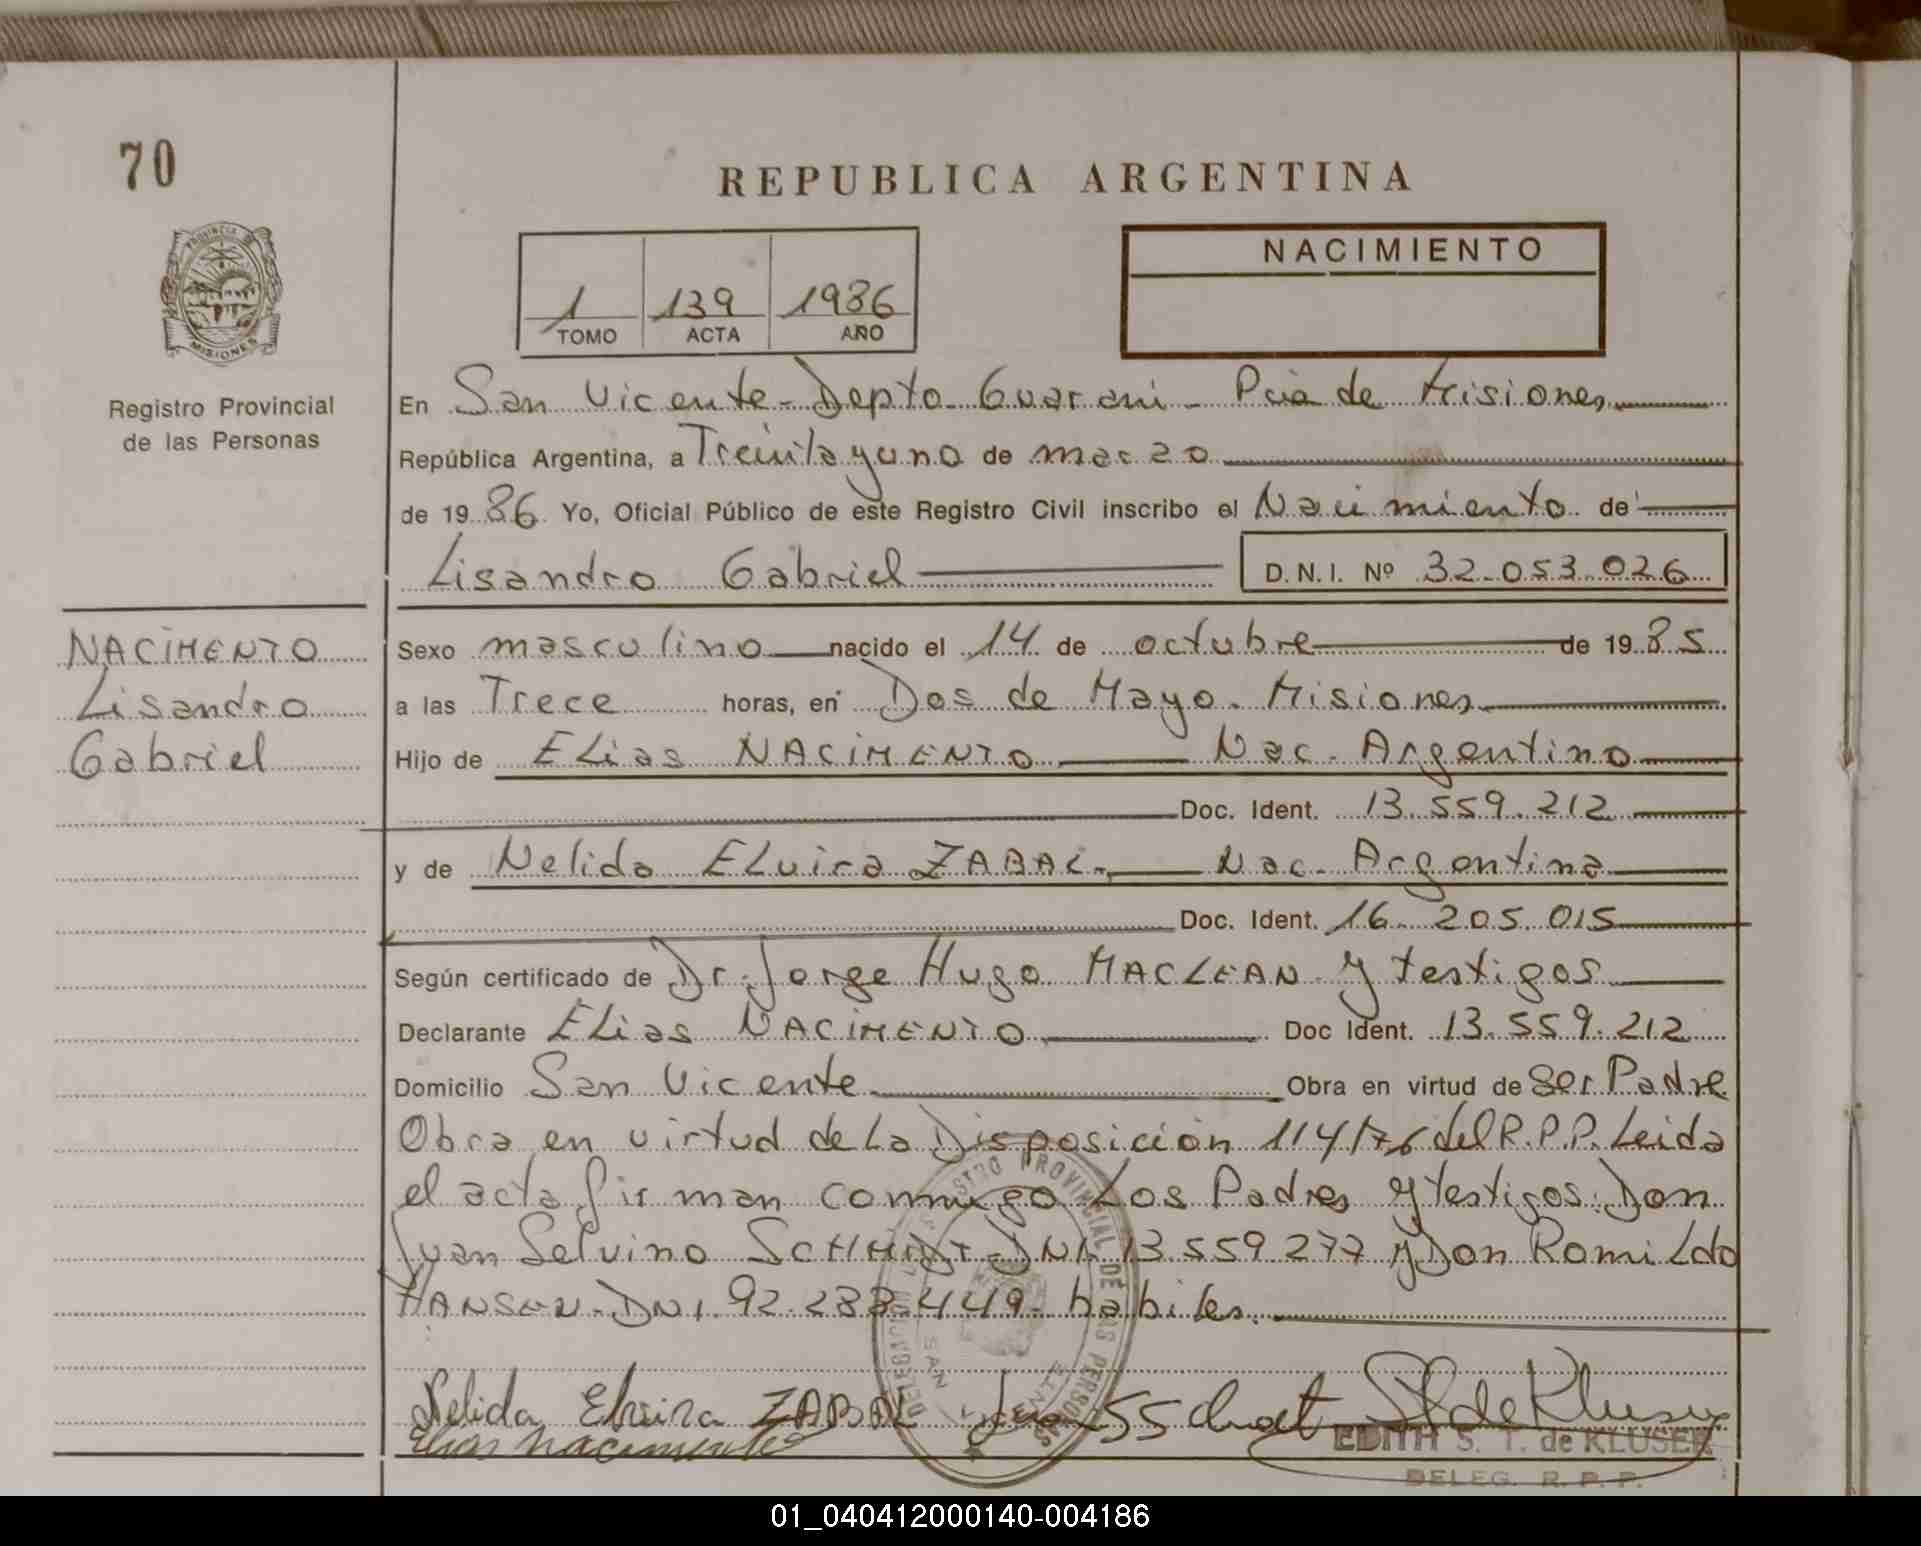 70
REPUBLICA ARGENTINA
PROVINCIA DE
MISIONES
Registro Provincial
de las Personas
1 139 1986
TOMO ACTA AÑO
NACIMIENTO
En San Vicente - Depto Guarani - Pcia de Misiones
República Argentina, a Treintayuno de marzo
de 1986 Yo, Oficial Público de este Registro Civil inscribo el Nacimiento de
Lisandro Gabriel D.N.I. Nº 32.053.026
NACIMENTO
Lisandro
Gabriel
Sexo masculino nacido el 14 de octubre de 1985
a las Trece horas, en Dos de Mayo - Misiones
Hijo de Elias NACIMENTO Nac. Argentino
Doc. Ident. 13.559.212
y de Nelida Elvira ZABAL Nac. Argentina
Doc. Ident. 16.205.015
Según certificado de Dr. Jorge Hugo MACLEAN y testigos
Declarante Elias NACIMENTO Doc Ident. 13.559.212
Domicilio San Vicente Obra en virtud de Ser Padre
Obra en virtud de La Disposición 114/76 del R.P.P. Leida
el acta firman conmigo Los Padres y testigos: Don
Juan Selvino DNI. 13.559.277 y Don Romildo
HANSEN - DNI. 92.288.449 - habiles.
REGISTRO PROVINCIAL DE LAS PERSONAS
DELEGACION
SAN VICENTE
Nelida Elvira ZABAL
Elias Nacimento
EDITH S. T. de KLUSER
DELEG. R. P. P.
01_040412000140-004186